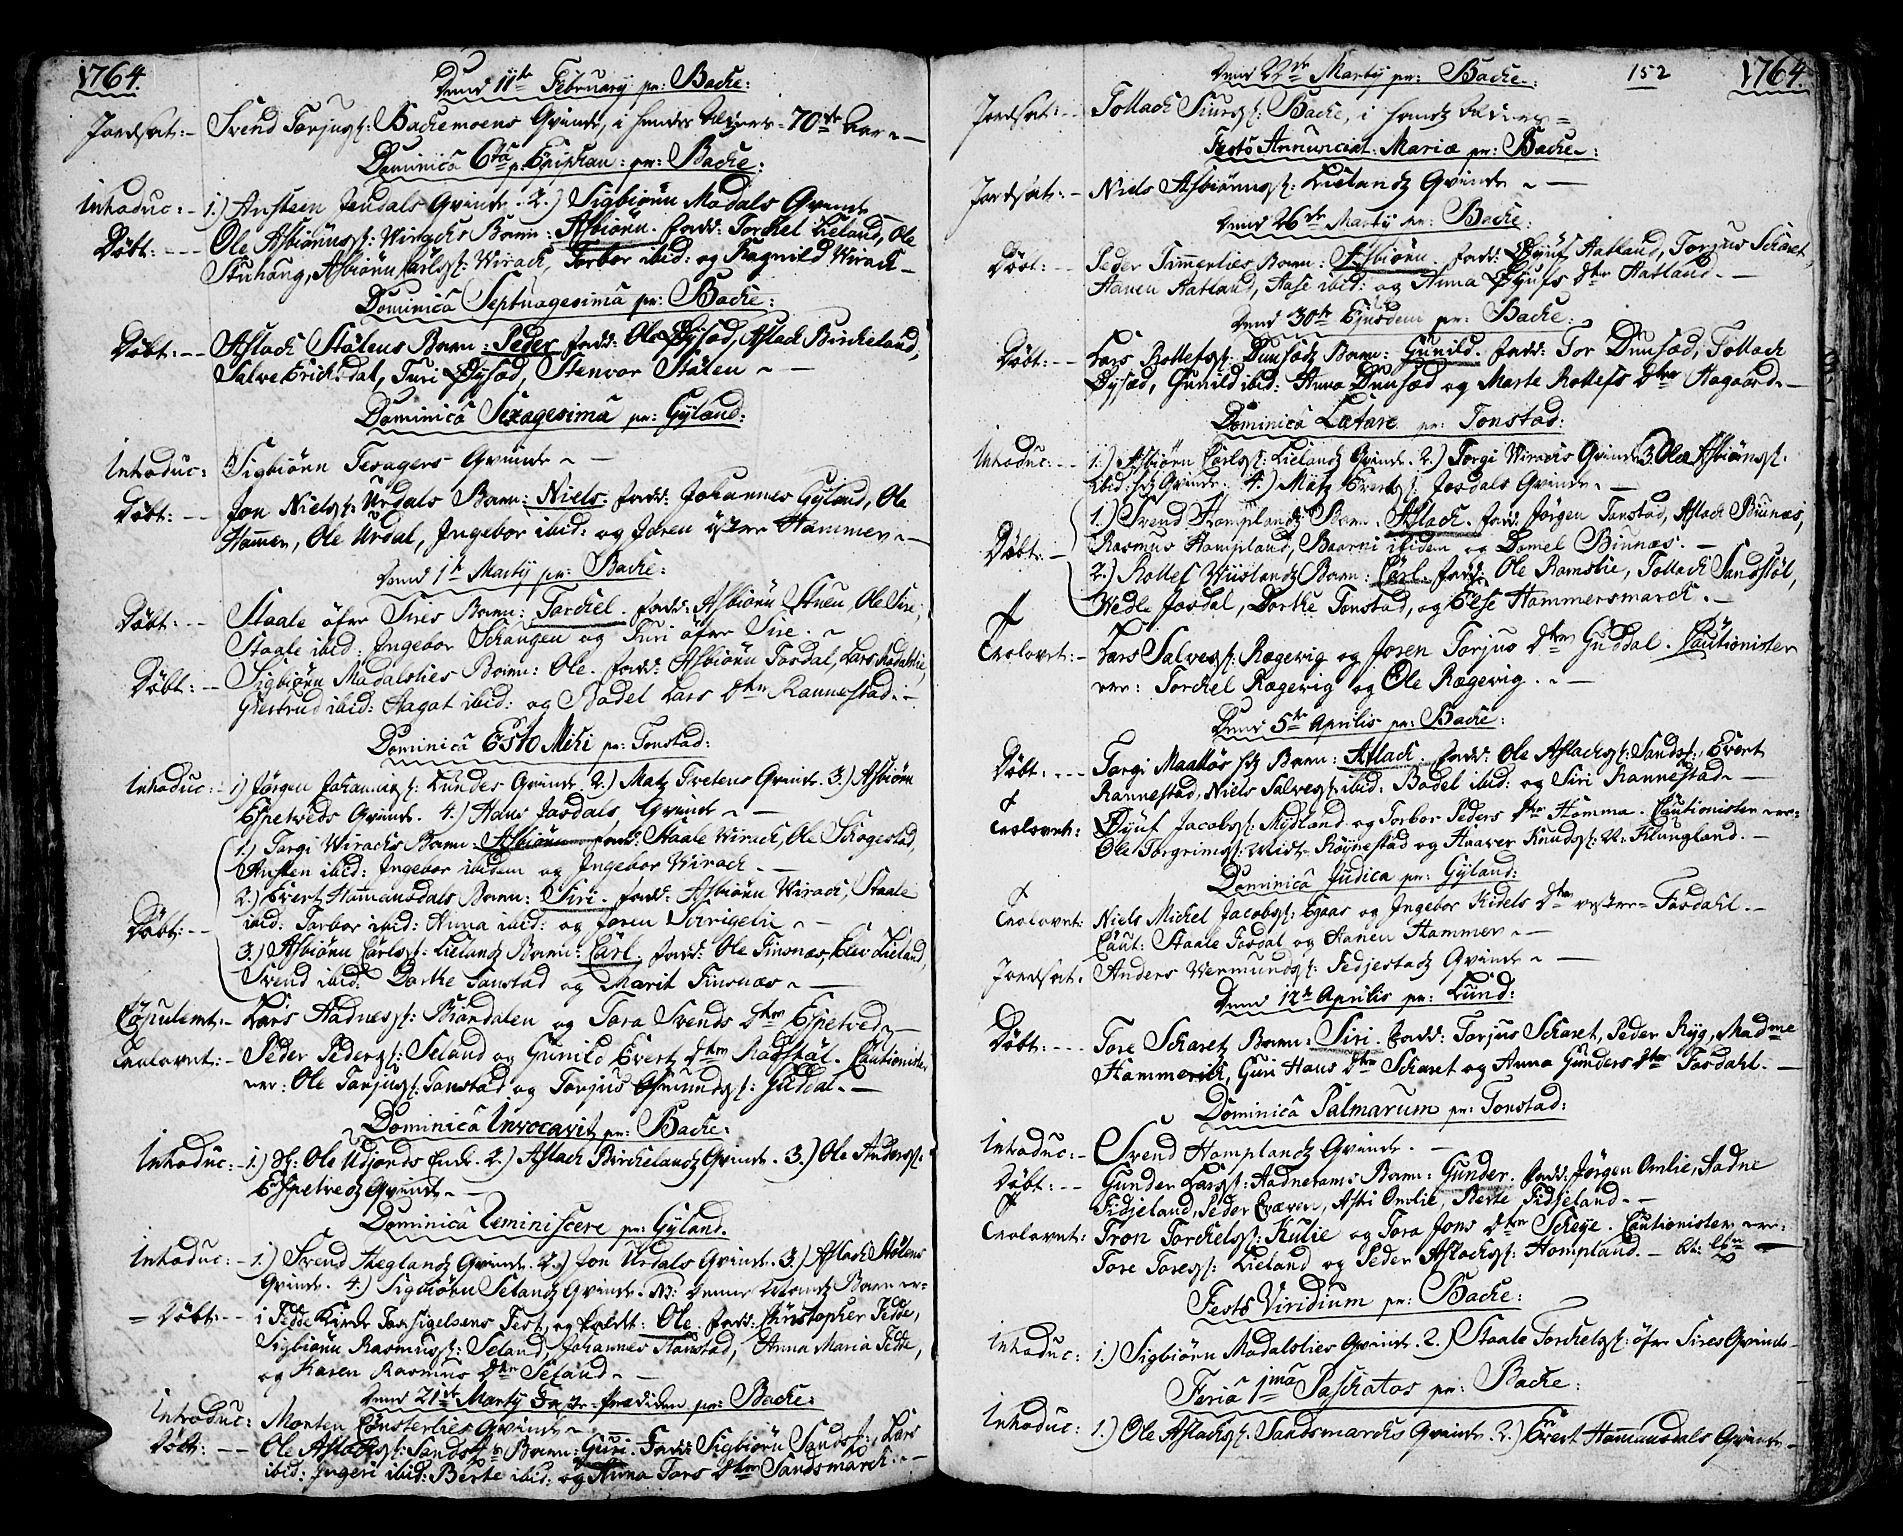 1764.
Dend 11te February pr: Backe:
Jordsat: - Svend Torjusf: Backemoens Qvinde, i hendes Alders - 70de Aar
Dominica 6ta p. Epiphan: pr: Backe:
Introduc: - 1.) Austeen Jendals Qvinde. 2.) Sigbiörn Modals Qvinde
Döbt: - - Ole Asbiörnsf: Wirachs Barn: Asbiörn. Fadd: Torchel Lieland, Ole
Stuhaug, Asbiörn Carlsf: Wirach, Torbor ibid: og Ragnild Wirach -
Dominica Septuagesima pr: Backe:
Döbt: - - Aslach Stölens Barn: Peder Fadd: Ole Øysæd, Aslach Birkeland,
Salve Ericksdal, Turi Øysæd, Stenvor Stölen
Dominica Sexagesima pr: Gyland:
Introduc: Sigbiörn Tesagers Qvinde
Döbt: - - Jon Nielsf: Urdals Barn: Niels. Fadd: Johannes Gyland, Ole
Hammer, Ole Urdal, Ingebor ibid: og Joren östre Hammer -
Dend 1te Marty pr: Backe:
Döbt: - - Staale öfre Sires Barn: Torchel. Fadd: Asbiörn Stuen, Ole Sire,
Staale ibid: Ingebor Schangen og Turi öfre Sire.
Döbt: - - Sigbiörn Modalslies Barn: Ole. Fadd: Asbiörn Tosdal, Lars Modalslie,
Giertrud ibid: Aagat ibid: og Bodel Lars Dtter Rannestad.
Dominica Esto Mihi pr: Tonstad:
Introduc: - 1.) Jörgen Johannesf: Lundes Qvinde 2.) Matz Tvetens Qvinde. 3.) Asbiörn
Espetveds Qvinde. 4.) Hans Josdals Qvinde
1.) Torgi Wirachs Barn: Asbiörn Fadd: Staale Wirach, Ole Schogestad,
Austen ibid: Ingebor ibidem og Ingebor Wirach -
2.) Evert Hammansdals Barn: Siri. Fadd: Asbiörn Wirach, Staale
Döbt: - - ibid: Torbor ibid: Anna ibid: og Joren Virigelie
3.) Asbiörn Carlsf: Lielands Barn: Carl. Fadd: Ole Finsnæs, Elev Lieland,
Svend ibid: Dorthe Tonstad og Marit Finsnæs
Copuleret: - Lars Aadnesf: Biöndalen og Tora Svends Dtter Espetved
Trolovet: - Peder Pedersf: Seland og Gunild Evertz Dtter Rödstöl. Cautionister
ere: Ole Torjusf: Tonstad og Torjus Gunundsf: Guddal.
Dominica Invocavit pr: Backe:
Introduc: - 1.) Sl: Ole Udjords Enke. 2.) Aslach Birchelandz Qvinde. 3.) Ole Andersf:
Espetvedz Qvinde
Dominica Reminiscere pr: Gyland.
Introduc: - 1.) Svend Skeglandz Qvinde. 2.) Jon Urdals Qvinde. 3.) Aslach Stölens
Qvinde. 4.) Sigbiörn Selandz Qvinde. NB: Denne Selandz Barn er
= Döbt: - - i Fedde Kirke Torsigelsens Fest og kaldet: Ole. Fadd: Christopher Fedde,
Sigbiörn Rasmusf: Seland, Johannes Tonstad, Anna Maria Fedde,
og Karen Rasmus Dtter Seland.
Dend 21de Marty Faste-Prædiken pr: Backe:
Introduc: Morten Consterlies Qvinde
Döbt: - - Ole Aslachsf: Sandsf: Barn: Guri. Fadd: Sigbiörn Sandsf:, Lars
ibid: Ingeri ibid: Berte ibid: og Anna Tors Dtter Sandsmarch.
Dend 22de Marty pr: Backe:
152
1764.
Jordsat: - - Tollach Siursf: Backe, i hands Alders
Festo Annunciat: Mariæ pr: Backe:
Jordsat: - Niels Asbiörnsf: Lielandz Qvinde
Dend 26de Marty pr: Backe:
Döbt: - - Peder Timmerlies Barn: Asbiörn. Fadd: Øyuf Aatland, Torjus Scharet,
Hanen Aatland, Aase ibid: og Anna Øyufs Dtter Aatland.
Dend 30te Ejusdem pr: Backe:
Döbt: - - Lars Rollefsf: Dunsædz Barn: Gunild. Fadd: Tor Dunsæd, Tollach
Øysæd, Gunild ibid: Anna Dunsæd og Marte Rollefs Dtter Aagaard.
Dominica Lætare pr: Tonstad:
Introduc: - - 1.) Asbiörn Carlsf: Lielandz Qvinde. 2.) Torgi Wirachs Qvinde 3. Ole Asbiörnsf:
ibid: hs Qvinde. 4.) Matz Evertsf: Josdals Qvinde.
1.) Svend Homplandz Barn: Aslach. Fadd: Jörgen Tonstad, Aslach Biunæs,
Döbt: - Rasmus Hompland, Baarni ibidem og Domel Biunæs.
2.) Rollef Wiislandz Barn: Carl. Fadd: Ole Ramslie, Tollach Sandstöl,
Wedle Josdal, Dorthe Tonstad, og Else Hammersmarch.
Trolovet: - Lars Salvesf: Rægevig og Joren Torjus Dtter Guddal. Cautionister
ere: Torchel Rægevig og Ole Rægevig.
Dend 5te Aprilis pr: Backe:
Döbt: - - - Torgi Maalös hs Barn: Aslach. Fadd: Ole Aslachsf: Sandsf:, Evert
Rannestad, Niels Salvesf: ibid: Bodel ibid: og Siri Rannestad
Trolovet: Øyuf Jacobsf: Mydland og Torbor Peders Dtter Homma. Cautionister ere:
Ole Torgrimsf: Midt-Röynestad og Haaver Knudsf: N: Klungland.
Dominica Judica pr: Gyland:
Trolovet: Niels Michel Jacobsf: Egaas og Ingebor Kidels Dtter vestre Tosdahl.
Caut: Staale Tosdal og Hanen Hammer
Jordsat: Anders Vermundsf: Fedjestadz Qvinde
Dend 12te Aprilis pr: Lund:
Döbt: - - - Tore Scharetz Barn: Siri. Fadd: Torjus Scharet, Peder Ryg, Madme
Hammerich, Guri Hans Dtter Scharet og Anna Gunders Dtter Tosdahl.
Dominica Palmarum pr: Tonstad:
Introduc: - Svend Homplandz Qvinde.
Döbt: - - Gunder Larsf: Aadnerams Barn: Gunder. Fadd: Jörgen Omlie, Aadne
Fidjeland, Peder Qvæven, Astri Omlie, Berte Fidjeland.
Trolovet: Tron Torchelsf: Kulie og Tora Jons Dtter Scheye. Cautionister ere:
Tore Toresf: Lieland og Peder Aslachsf: Hompland.
Festo Viridium pr: Backe:
Introduc: 1.) Sigbiörn Modalslies Qvinde. 2.) Staale Torchelsf: öfre Sires Qvinde
Feria 1ma Paschatos pr: Backe:
Introduc: 1.) Ole Aslachsf: Sandsmarchs Qvinde. 2.) Evert Hammansdals Qvinde